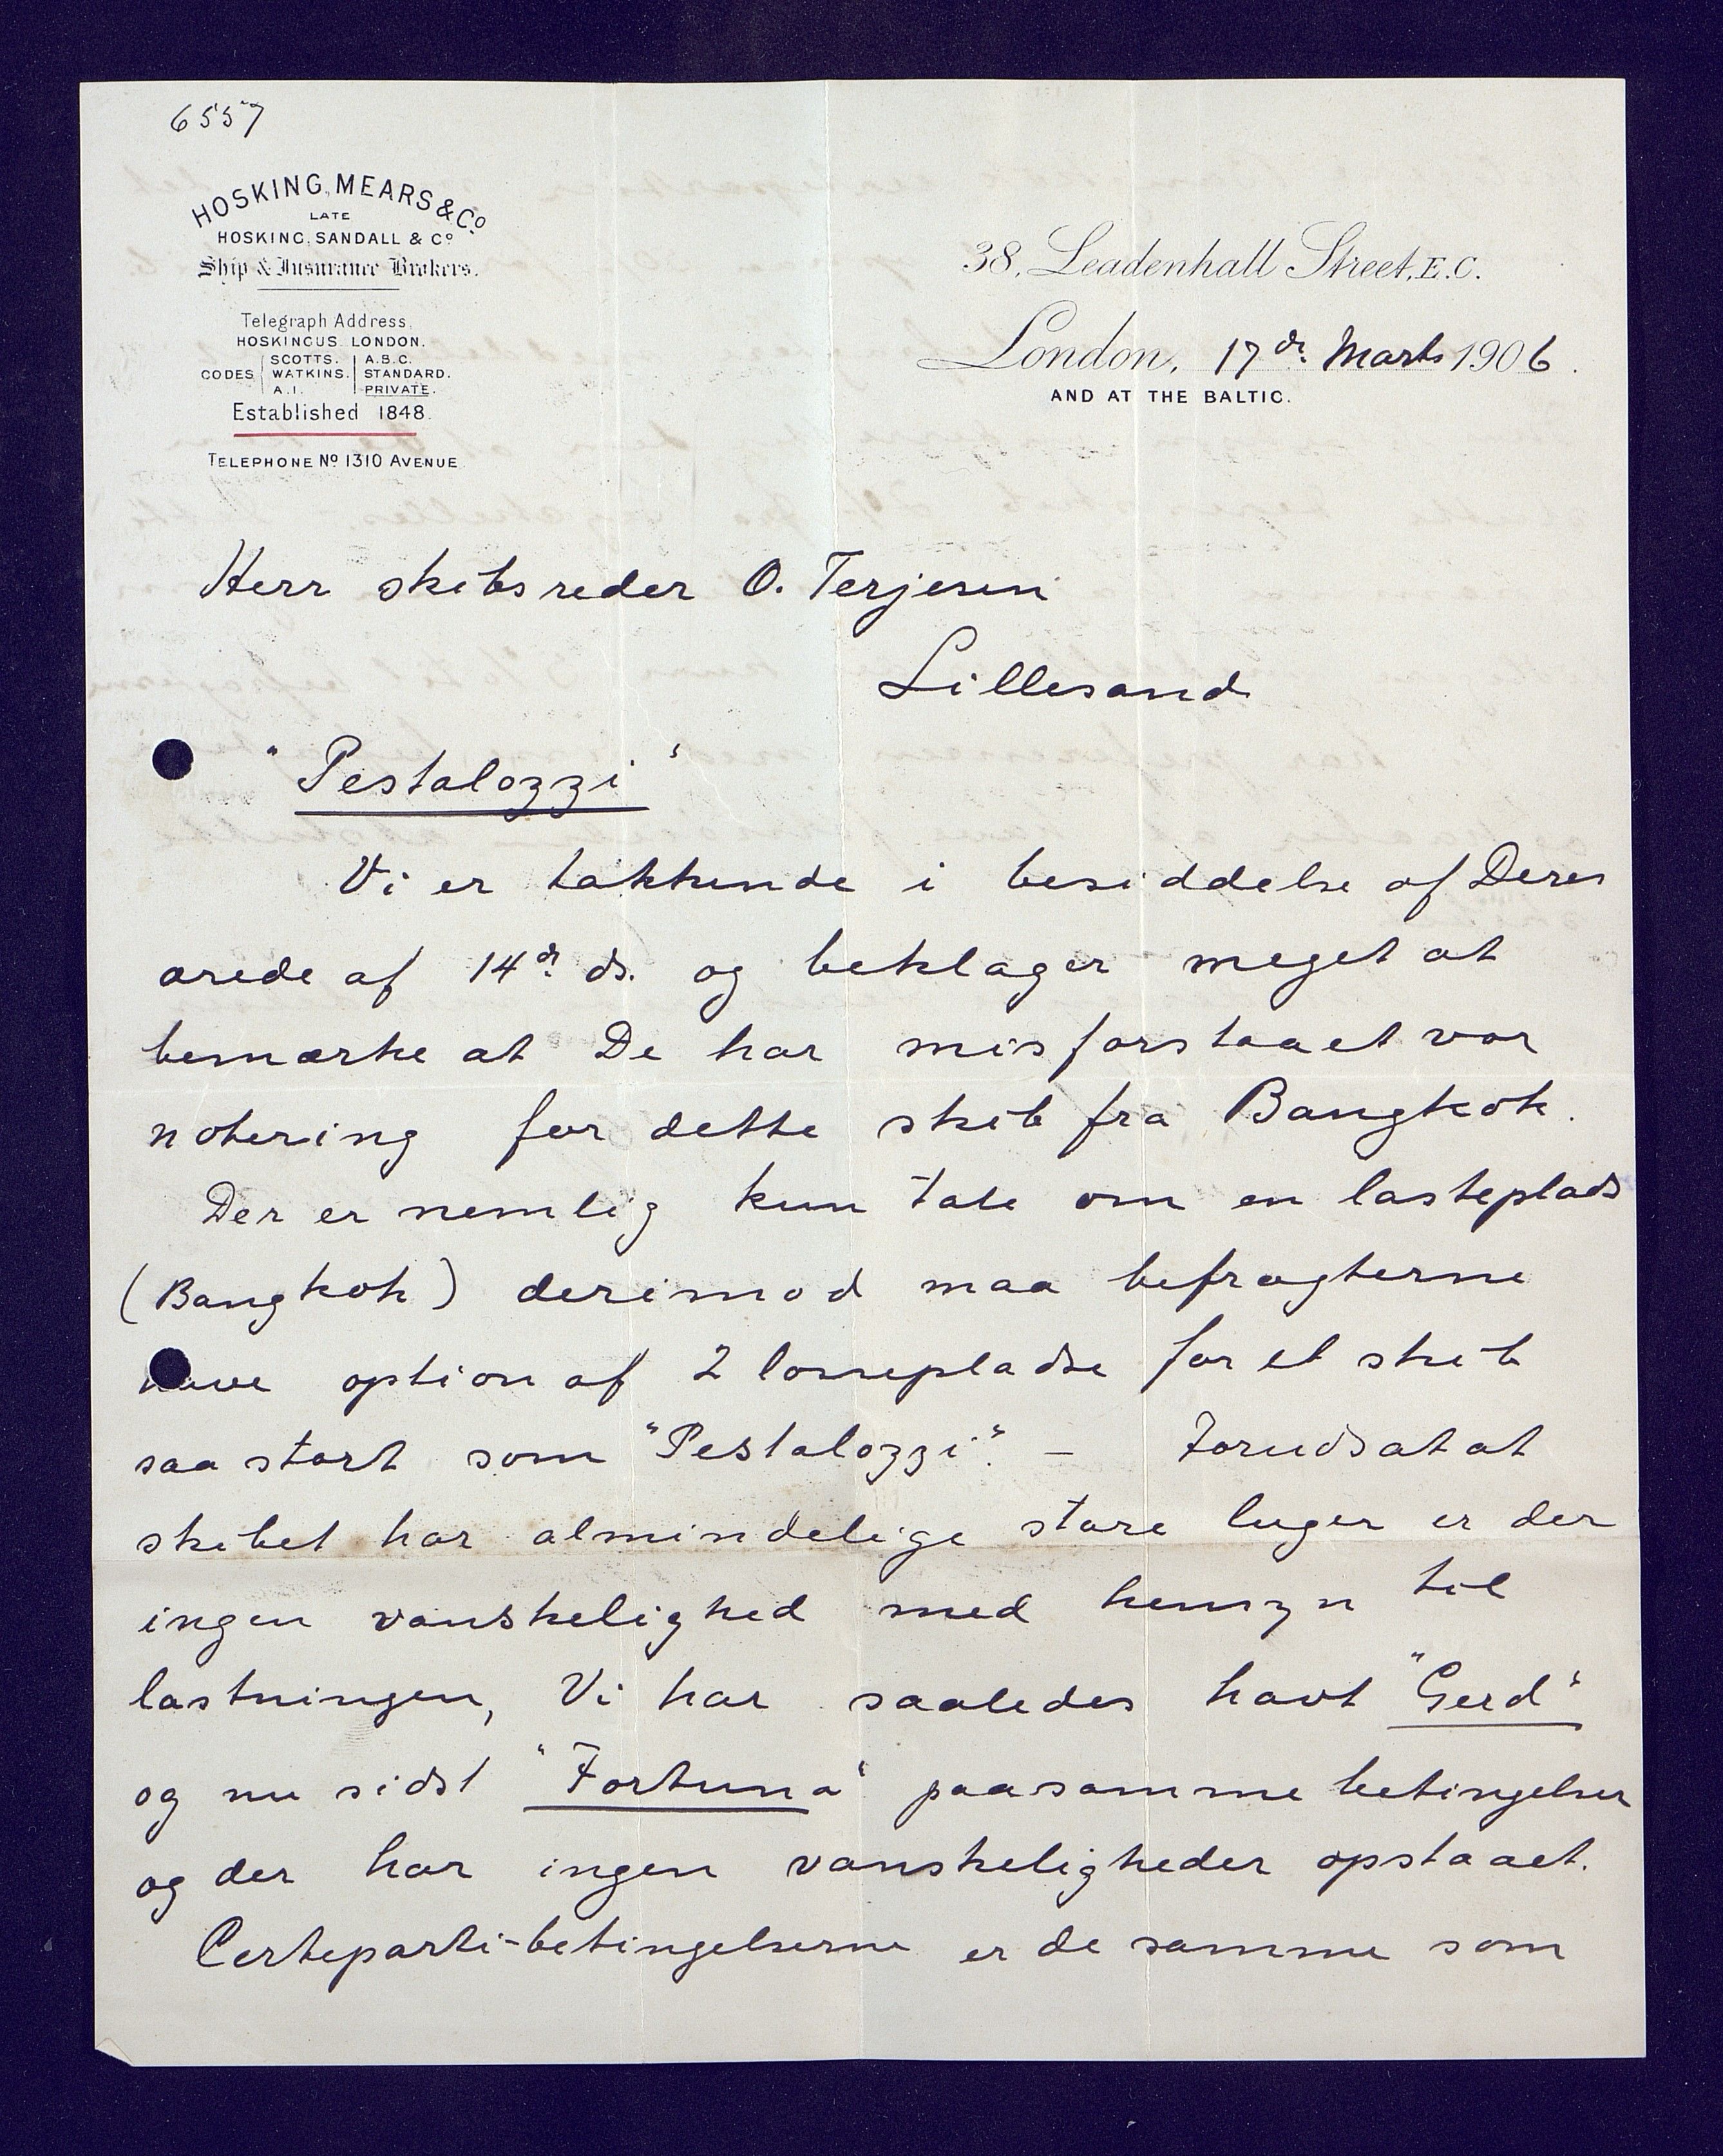 6557
HOSKING, MEARS & Co.
LATE
HOSKING, SANDALL & Co
Ship & Insurance Brokers.
Telegraph Address.
HOSKINGUS LONDON.
CODES SCOTTS. A.B.C.
WATKINS. STANDARD.
A.I. PRIVATE.
Established 1848.
TELEPHONE No 1310 AVENUE
38, Leadenhall Street, E.C.
London, 17de. Marts 1906.
AND AT THE BALTIC.
Herr skibsreder O. Terjesen
Lillesand
"Pestalozzi"
Vi er takkende i besiddelse af Deres
ærede af 14de. ds. og beklager meget at
bemærke at De har misforstaaet vor
notering for dette skib fra Bangkok.
Der er nemlig kun tale om en lasteplads
(Bangkok) derimod maa befragterne
have option af 2 lossepladse for et skib
saa stort som "Pestalozzi". — Forudsat at
skibet har almindelige store luger er der
ingen vanskelighed med hensyn til
lastningen, Vi har saaledes havt "Gerd"
og nu sidst "Fortuna" paa samme betingelser
og der har ingen vanskeligheder opstaaet.
Certeparti-betingelserne er de samme som